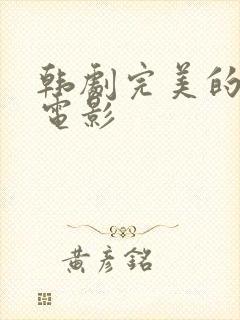 韩劇完美的
電影
黃彥銘